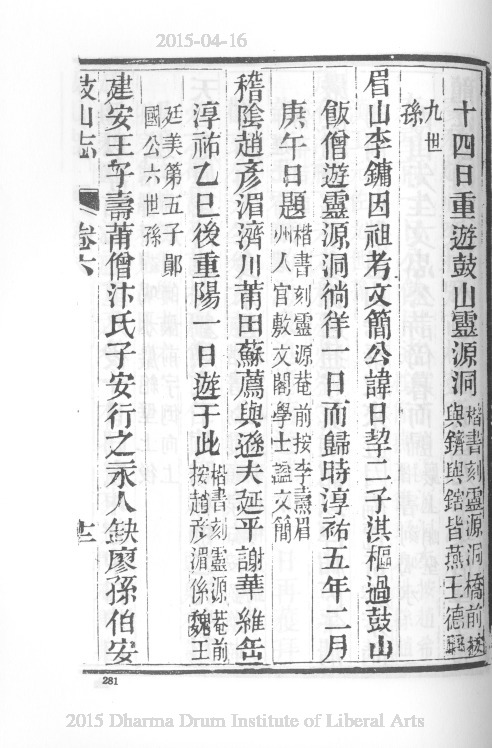 2015-04-16
十四日重遊鼓山靈源洞楷書刻靈源洞橋前按
與鑄與鎔皆燕王德昭
九世
孫
眉山李鏞因祖考文簡公諱日挈二子淇樞過鼓山
飯僧遊靈源洞徜徉一日而歸時淳祐五年二月
庚午日題楷書刻靈源菴前按李燾眉
州人官敷文閣學士諡文簡
稽陰趙彥湄濟川莆田蘇薦與遜夫延平謝華維岳
淳祐乙巳後重陽一日遊于此楷書刻靈源菴前
按趙彥湄係魏王
廷美第五子鄖
國公六世孫
建安王子壽莆僧汴氏子安行之永人缺廖孫伯安
鼓山志
卷六
十二
281
2015 Dharma Drum Institute of Liberal Arts